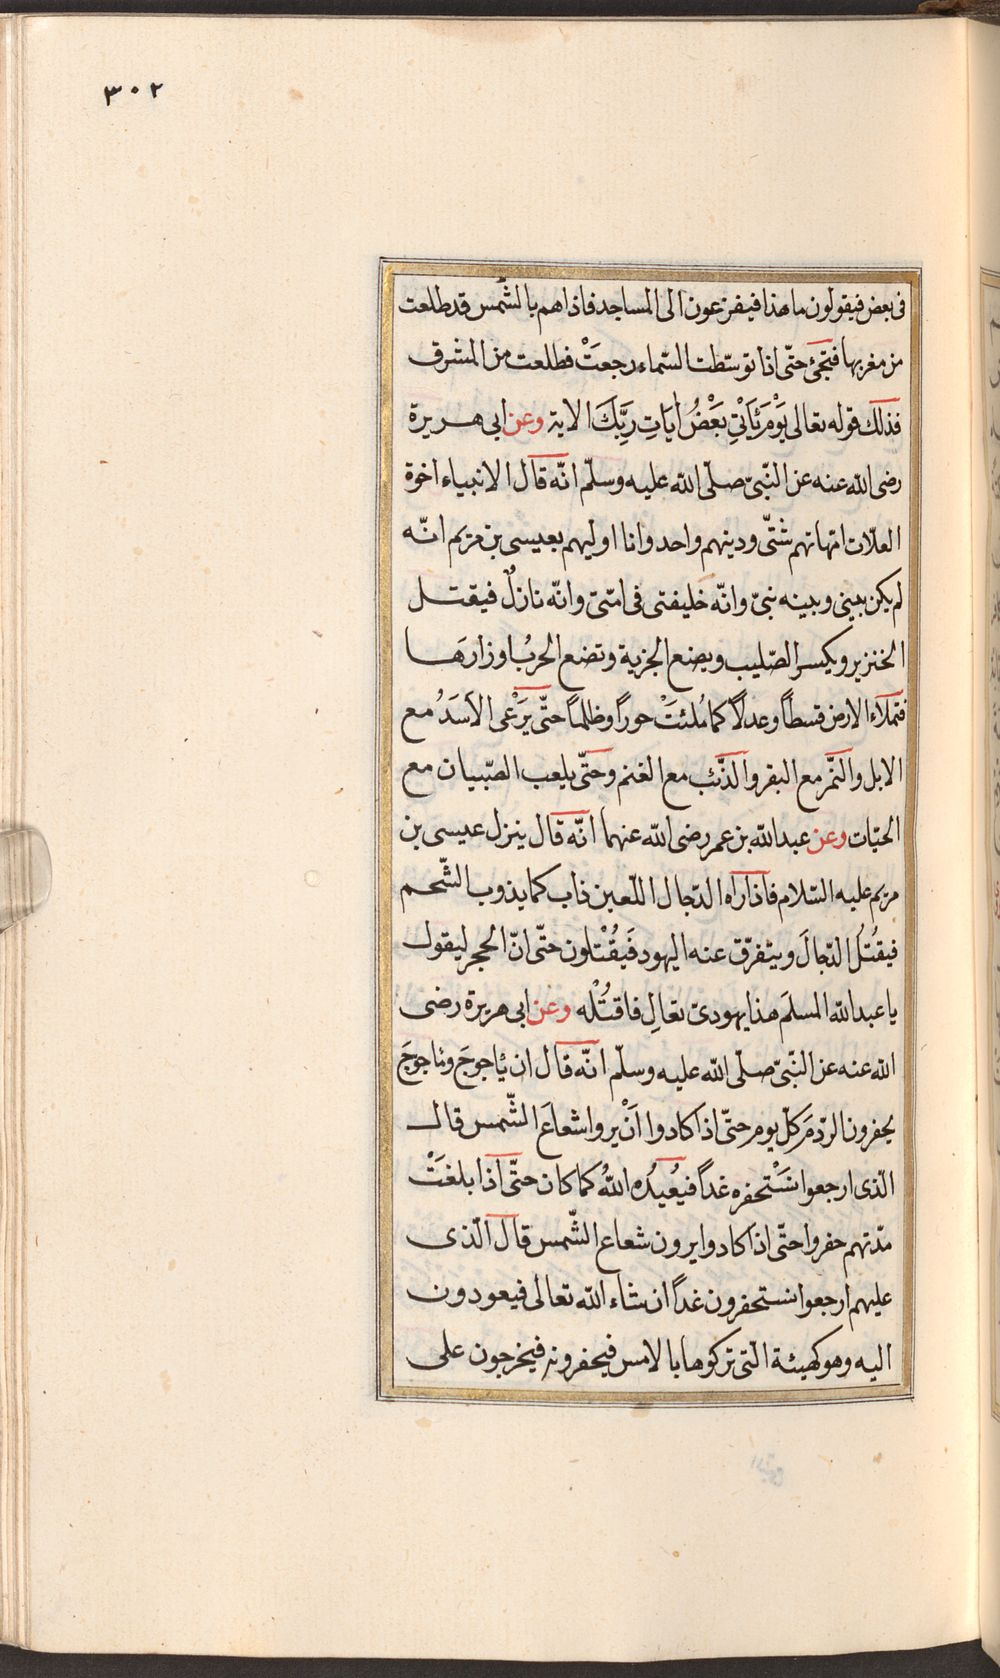 ٣٠٢
فى بعض فيقولون ما هذا فيفزعون الى المساجد فاذاهم بالشّمس قد طلعت
من مغربها فتجئ حتّى اذا توسّطت السّماء رجعتْ فطلعت من المشرق
فذلك قوله تعالى يَوْمَ يَأْتِي بَعْضُ اٰيَاتِ رَبِّكَ الاية وعن ابى هريرة
رضى الله عنه عن النّبىّ صلّى الله عليه وسلّم انّه قال الانبياء اخوة
العلّات امّهاتهم شتّى ودينهم واحد وانا اوليهم بعيسى بن مريم انّه
لم يكن بينى وبينه نبىّ وانّه خليفتى فى امّتى وانّه نازلٌ فيقتل
الخنزير ويكسر الصّليب ويضع الجزية وتضع الحربُ اوزارَها
فتملاء الارض قسطاً وعدلاً كما مُلئتْ جوراً وظلماً حتّى يَرْعى الاَسَدُ مع
الابل والنّمر مع البقر والذّئب مع الغنم وحتّى يلعب الصّبيان مع
الحيّات وعن عبد الله بن عمر رضى الله عنهما انّه قال ينزل عيسى بن
مريم عليه السّلام فاذا راٰه الدّجال اللّعين ذاب كما يذوب الشّحم
فيقتُلُ الدّجالَ ويتفرّق عنه اليهود فَيُقْتلون حتّى انّ الحجر ليقول
يا عبد الله المسلمَ هذا يهودىّ تعالِ فاقتُلْه وعن ابى هريرة رضى
الله عنه عن النّبىّ صلّى الله عليه وسلّم انّه قال ان يأجوجَ ومأجوجَ
يحفرون الرّدمَ كلّ يوم حتّى اذا كادوا اَنْ يروا شعاعَ الشّمس قال
الّذى ارجعوا سَنَسْتحفره غداً فيُعيدُه اللهُ كما كان حتّى اذا بلغتْ
مدّتهم حفروا حتّى اذا كادوا يرون شعاع الشّمس قال الّذى
عليهم ارجعوا سنستحفرون غداً ان شاء الله تعالى فيعودون
اليه وهو كهيئة الّتى تركوها بالامس فيحفرونه فيخرجون على